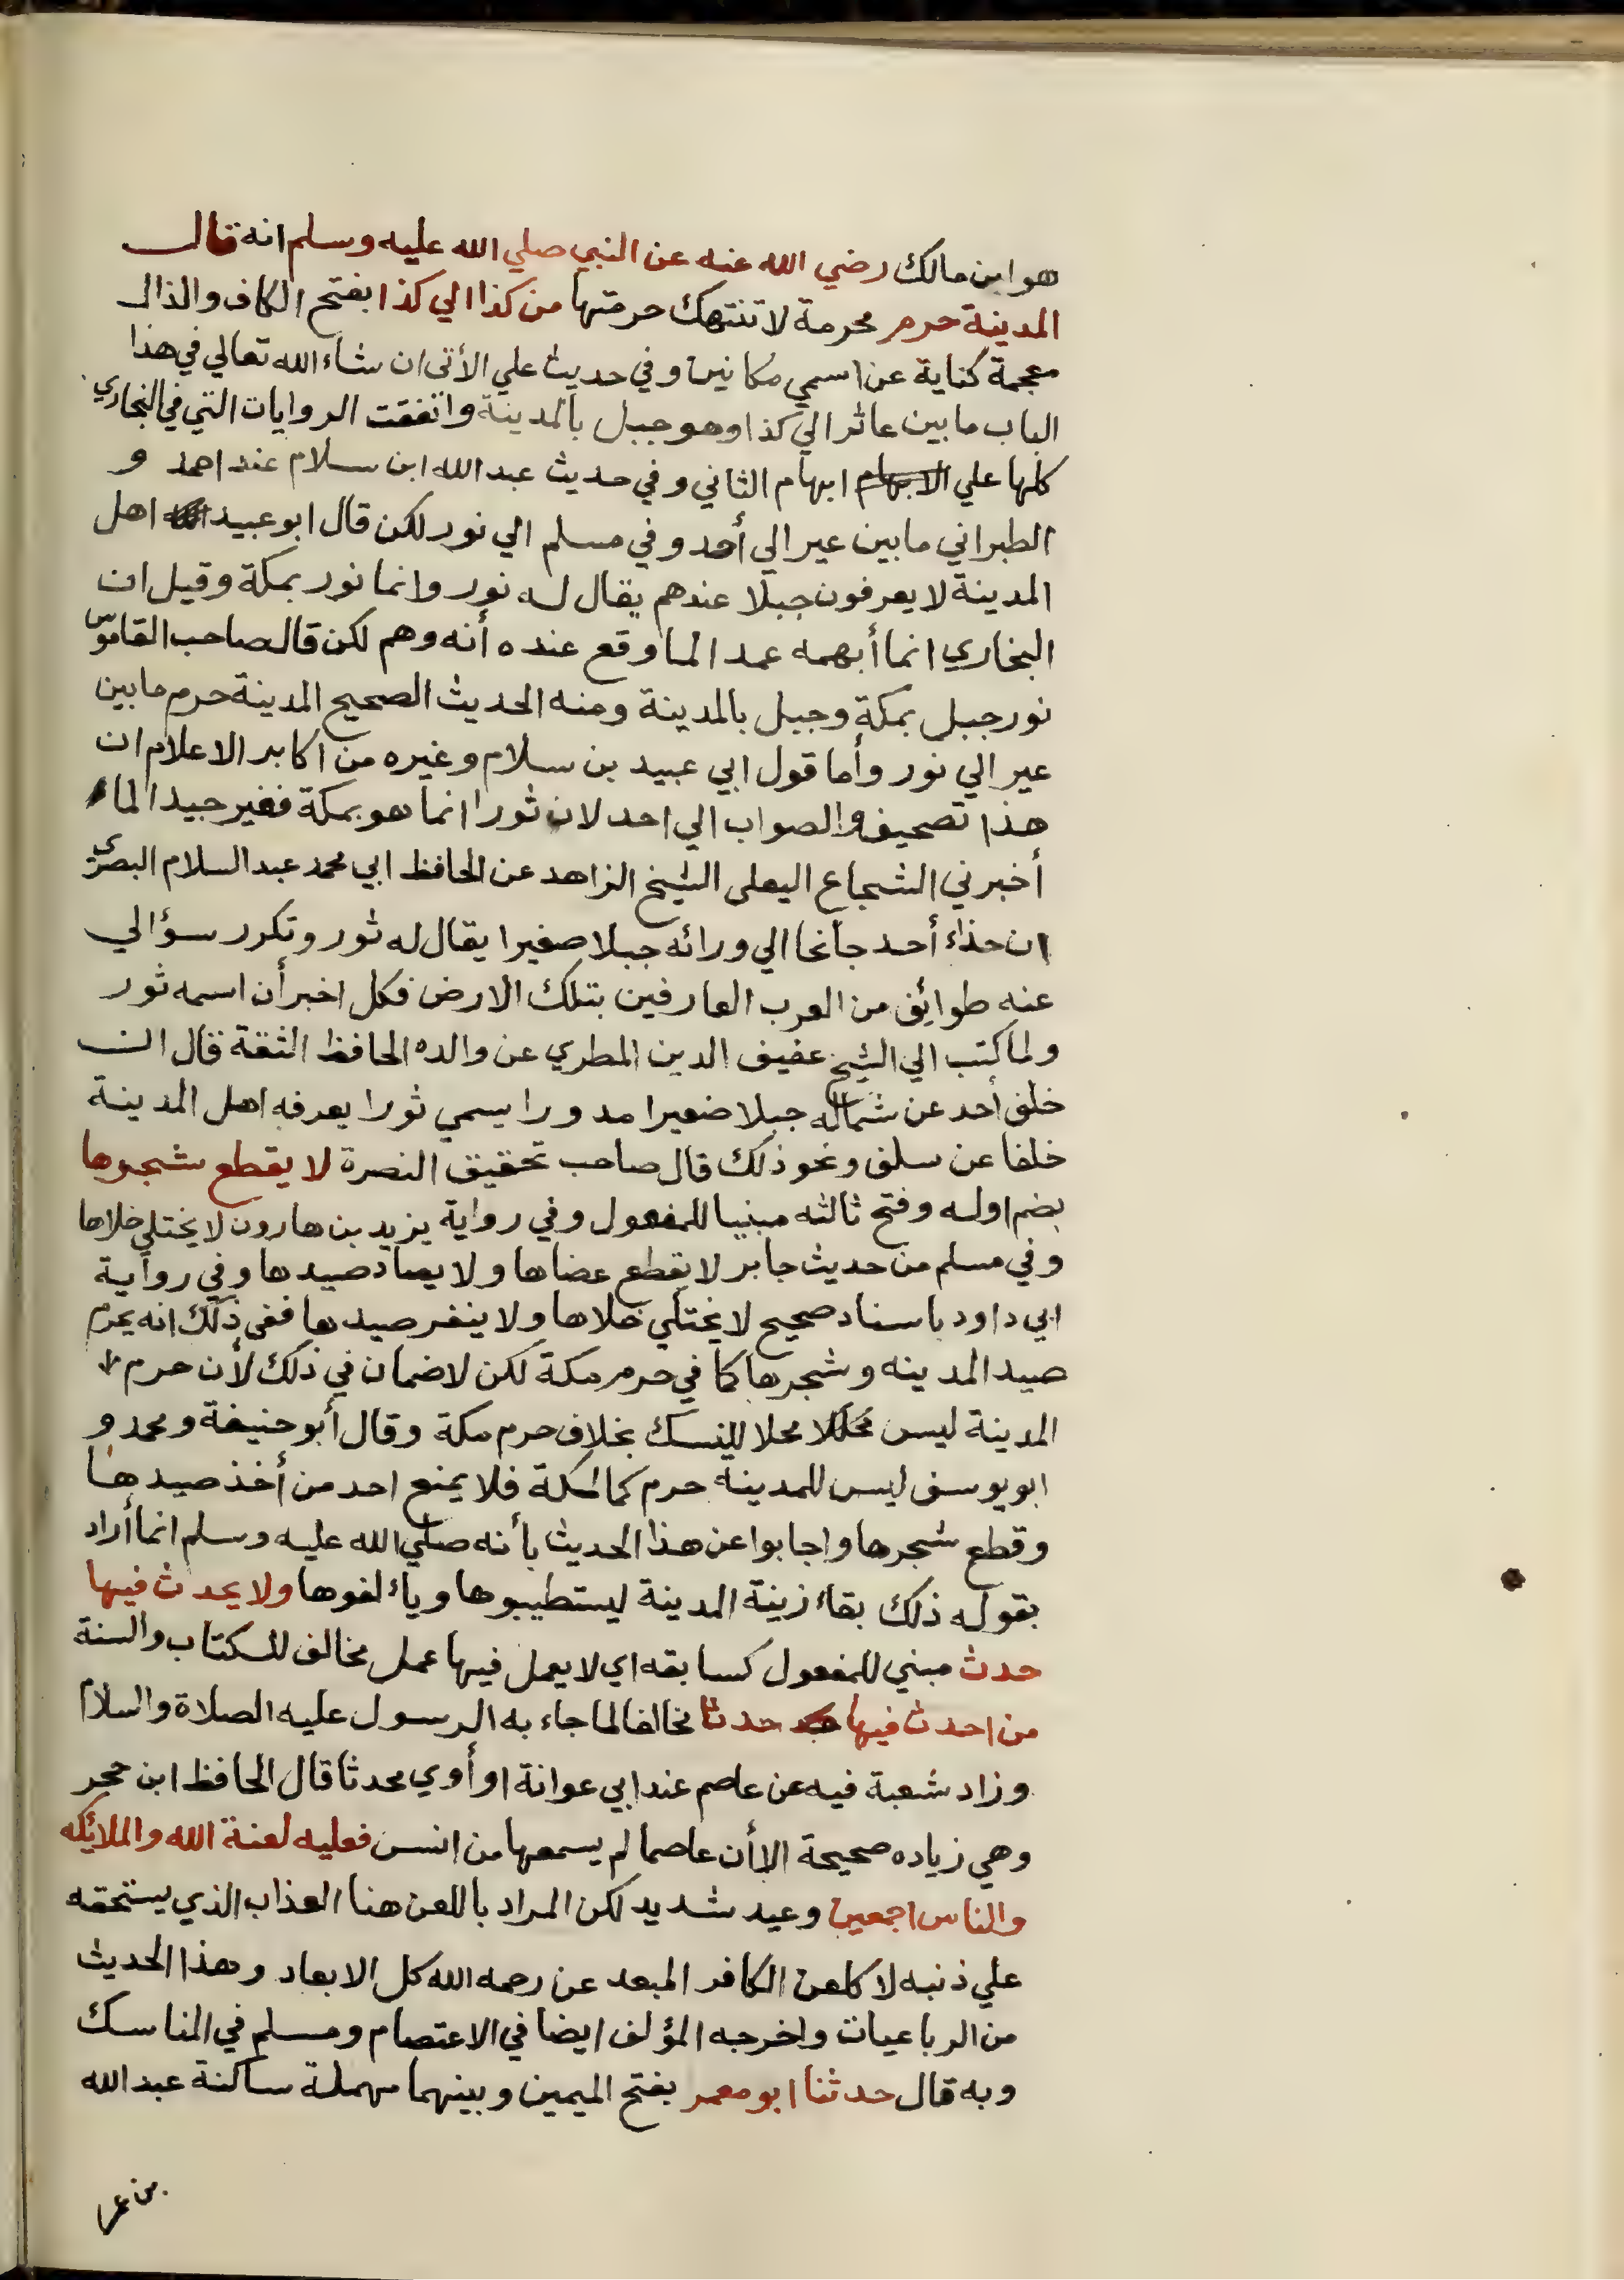 هو ابن مالك رضي الله عنه عن النبي صلي الله عليه وسلم انه قال
المدينة حرم محرمة لا تنتهك حرمتها من كذا الي كذا بفتح الكاف والذال
معجمة كناية عن اسمي مكانين وفي حديث علي الأتي ان شاء الله تعالي في هذا
الباب ما بين عائر الي كذا وهو جبل بالمدينة واتفقت الروايات التي في البخاري
كلها علي الابهام ابهام الثاني وفي حديث عبد الله ابن سلام عند احمد و
الطبراني ما بين عير الي أحد وفي مسلم الي نور لكن قال ابو عبيد اهل
المدينة لا يعرفون جبلا عندهم يقال له نور وانما نور بمكة وقيل ان
البخاري انما أبهمه عمدا لما وقع عنده أنه وهم لكن قال صاحب القاموس
نور جبل بمكة وجبل بالمدينة ومنه الحديث الصحيح المدينة حرم ما بين
عير الي نور وأما قول ابي عبيد بن سلام وغيره من اكابر الاعلام ان
هذا تصحيف والصواب الي احد لان ثورا انما هو بمكة فغير جيد لما
أخبرني الشجاع اليعلى الشيخ الزاهد عن الحافظ ابي محمد عبد السلام البصري
ان حذاء أحد جانحا الي ورائه جبلا صغيرا يقال له ثور وتكرر سؤالي
عنه طوائف من العرب العارفين بتلك الارض فكل اخبر أن اسمه ثور
ولما كتب الي الشيخ عفيف الدين المطري عن والده الحافظ الثقة قال ان
خلف أحد عن شماله جبلا صغيرا مدورا يسمي ثورا يعرفه اهل المدينة
خلفا عن سلف ونحو ذلك قال صاحب تحقيق النصرة لا يقطع شجرها
بضم اوله وفتح ثالثه مبنيا للمفعول وفي رواية يزيد بن هارون لا يختلي خلاها
وفي مسلم من حديث جابر لا يقطع عضاها ولا يصاد صيدها وفي رواية
ابي داود باسناد صحيح لا يختلي خلاها ولا ينفر صيدها ففي ذلك انه يحرم
صيد المدينه وشجرها كما في حرم مكة لكن لا ضمان في ذلك لأن حرم
المدينة ليس محلا للنسك بخلاف حرم مكة وقال أبو حنيفة ومحمد و
ابو يوسف ليس للمدينة حرم كما لمكة فلا يمنع احد من أخذ صيدها
وقطع شجرها واجابوا عن هذا الحديث بأنه صلي الله عليه وسلم انما أراد
بقوله ذلك بقاء زينة المدينة ليستطيبوها ويأ لفوها ولا يحدث فيها
حدث مبني للمفعول كسابقه اي لا يعمل فيها عمل مخالف للكتاب والسنة
من احدث فيها حدثا مخالفا لما جاء به الرسول عليه الصلاة والسلام
وزاد شعبة فيه عن عاصم عند ابي عوانة او أوي محدثا قال الحافظ ابن حجر
وهي زياده صحيحة الا أن عاصما لم يسمعها من انس فعليه لعنة الله والملائكه
والناس اجمعين وعيد شديد لكن المراد باللعن هنا العذاب الذي يستحقه
علي ذنبه لا كلعن الكافر المبعد عن رحمه الله كل الابعاد وهذا الحديث
من الرباعيات واخرجه المؤلف ايضا في الاعتصام ومسلم في المناسك
وبه قال حدثنا ابو معمر بفتح الميمين وبينهما مهملة ساكنة عبد الله